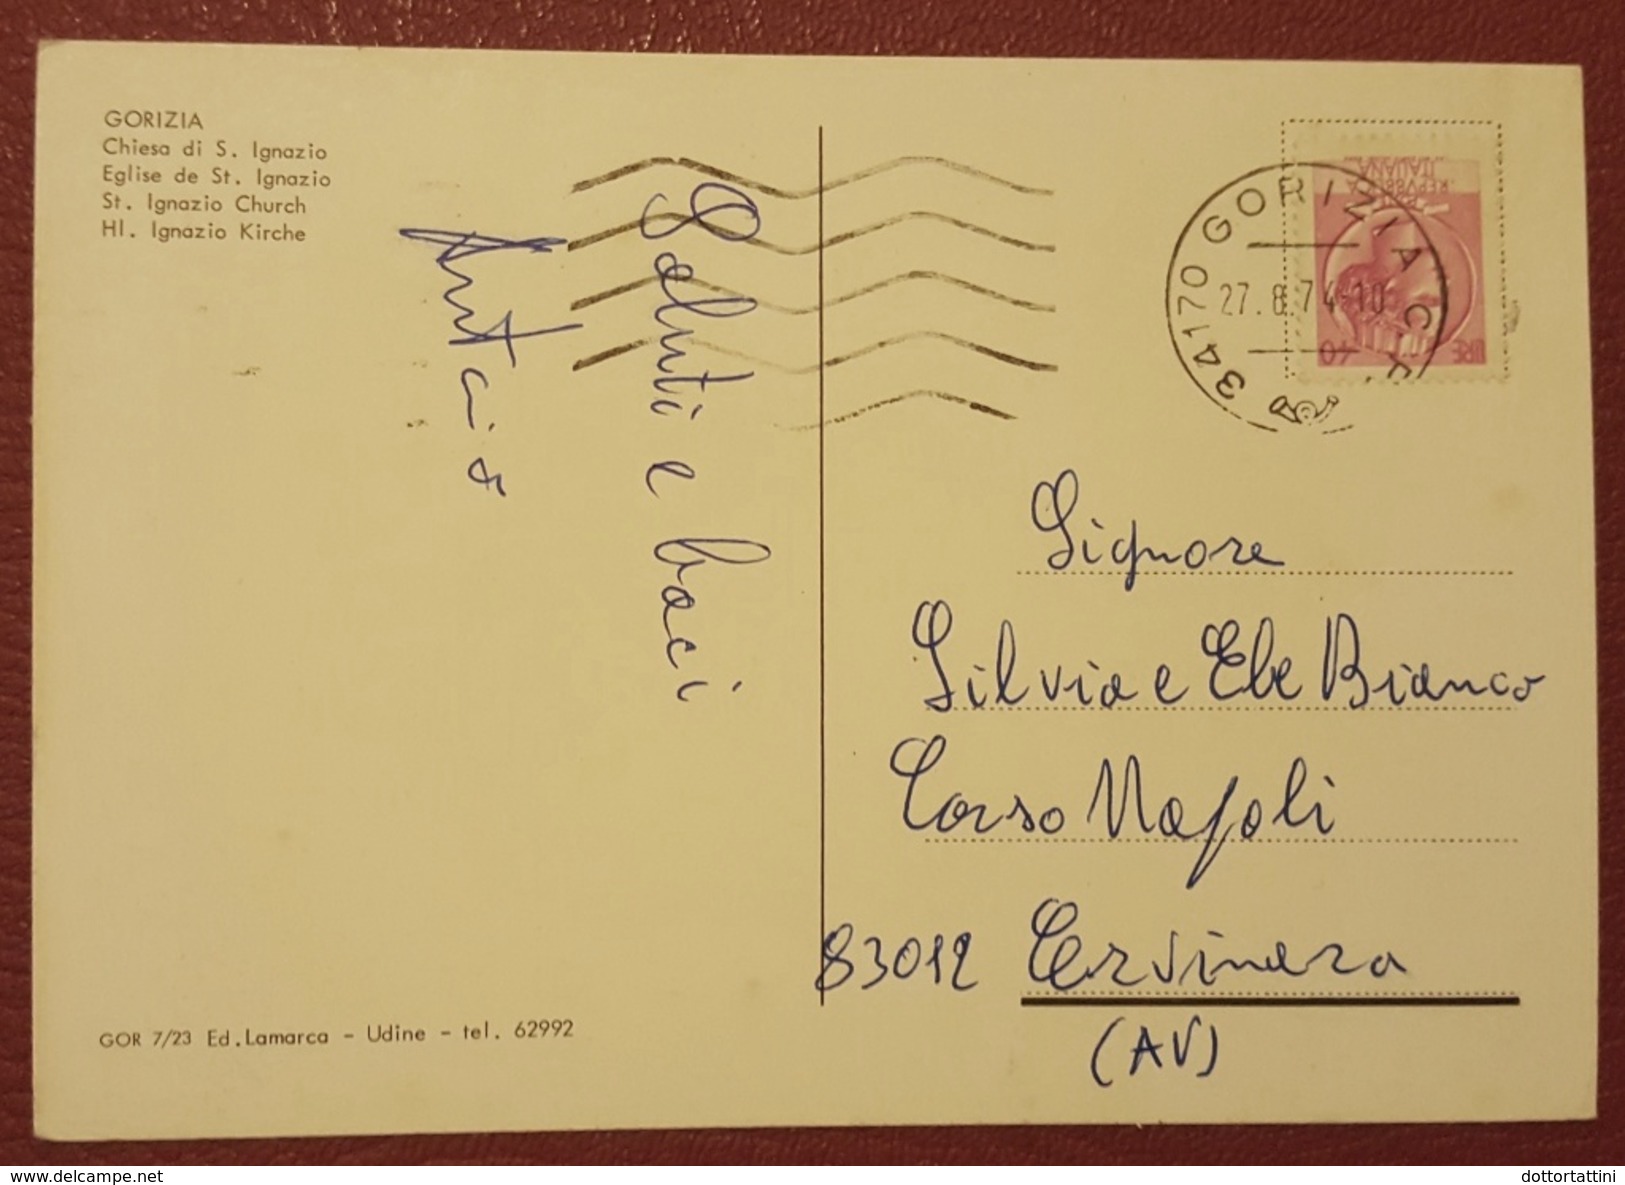 GORIZIA
Chiesa di S. Ignazio
Eglise de St. Ignazio
St. Ignazio Church
Hl. Ignazio Kirche
Saluti e baci
34170 GORIZIA C.P.
27.8.74-10
REPVBBLICA
ITALIANA
LIRE 40
Signore
Silvia e Ebe Bianco
Corso Napoli
83012 Cervinara
(AV)
GOR 7/23 Ed. Lamarca - Udine - tel. 62992
delcampe.net
dottortattini